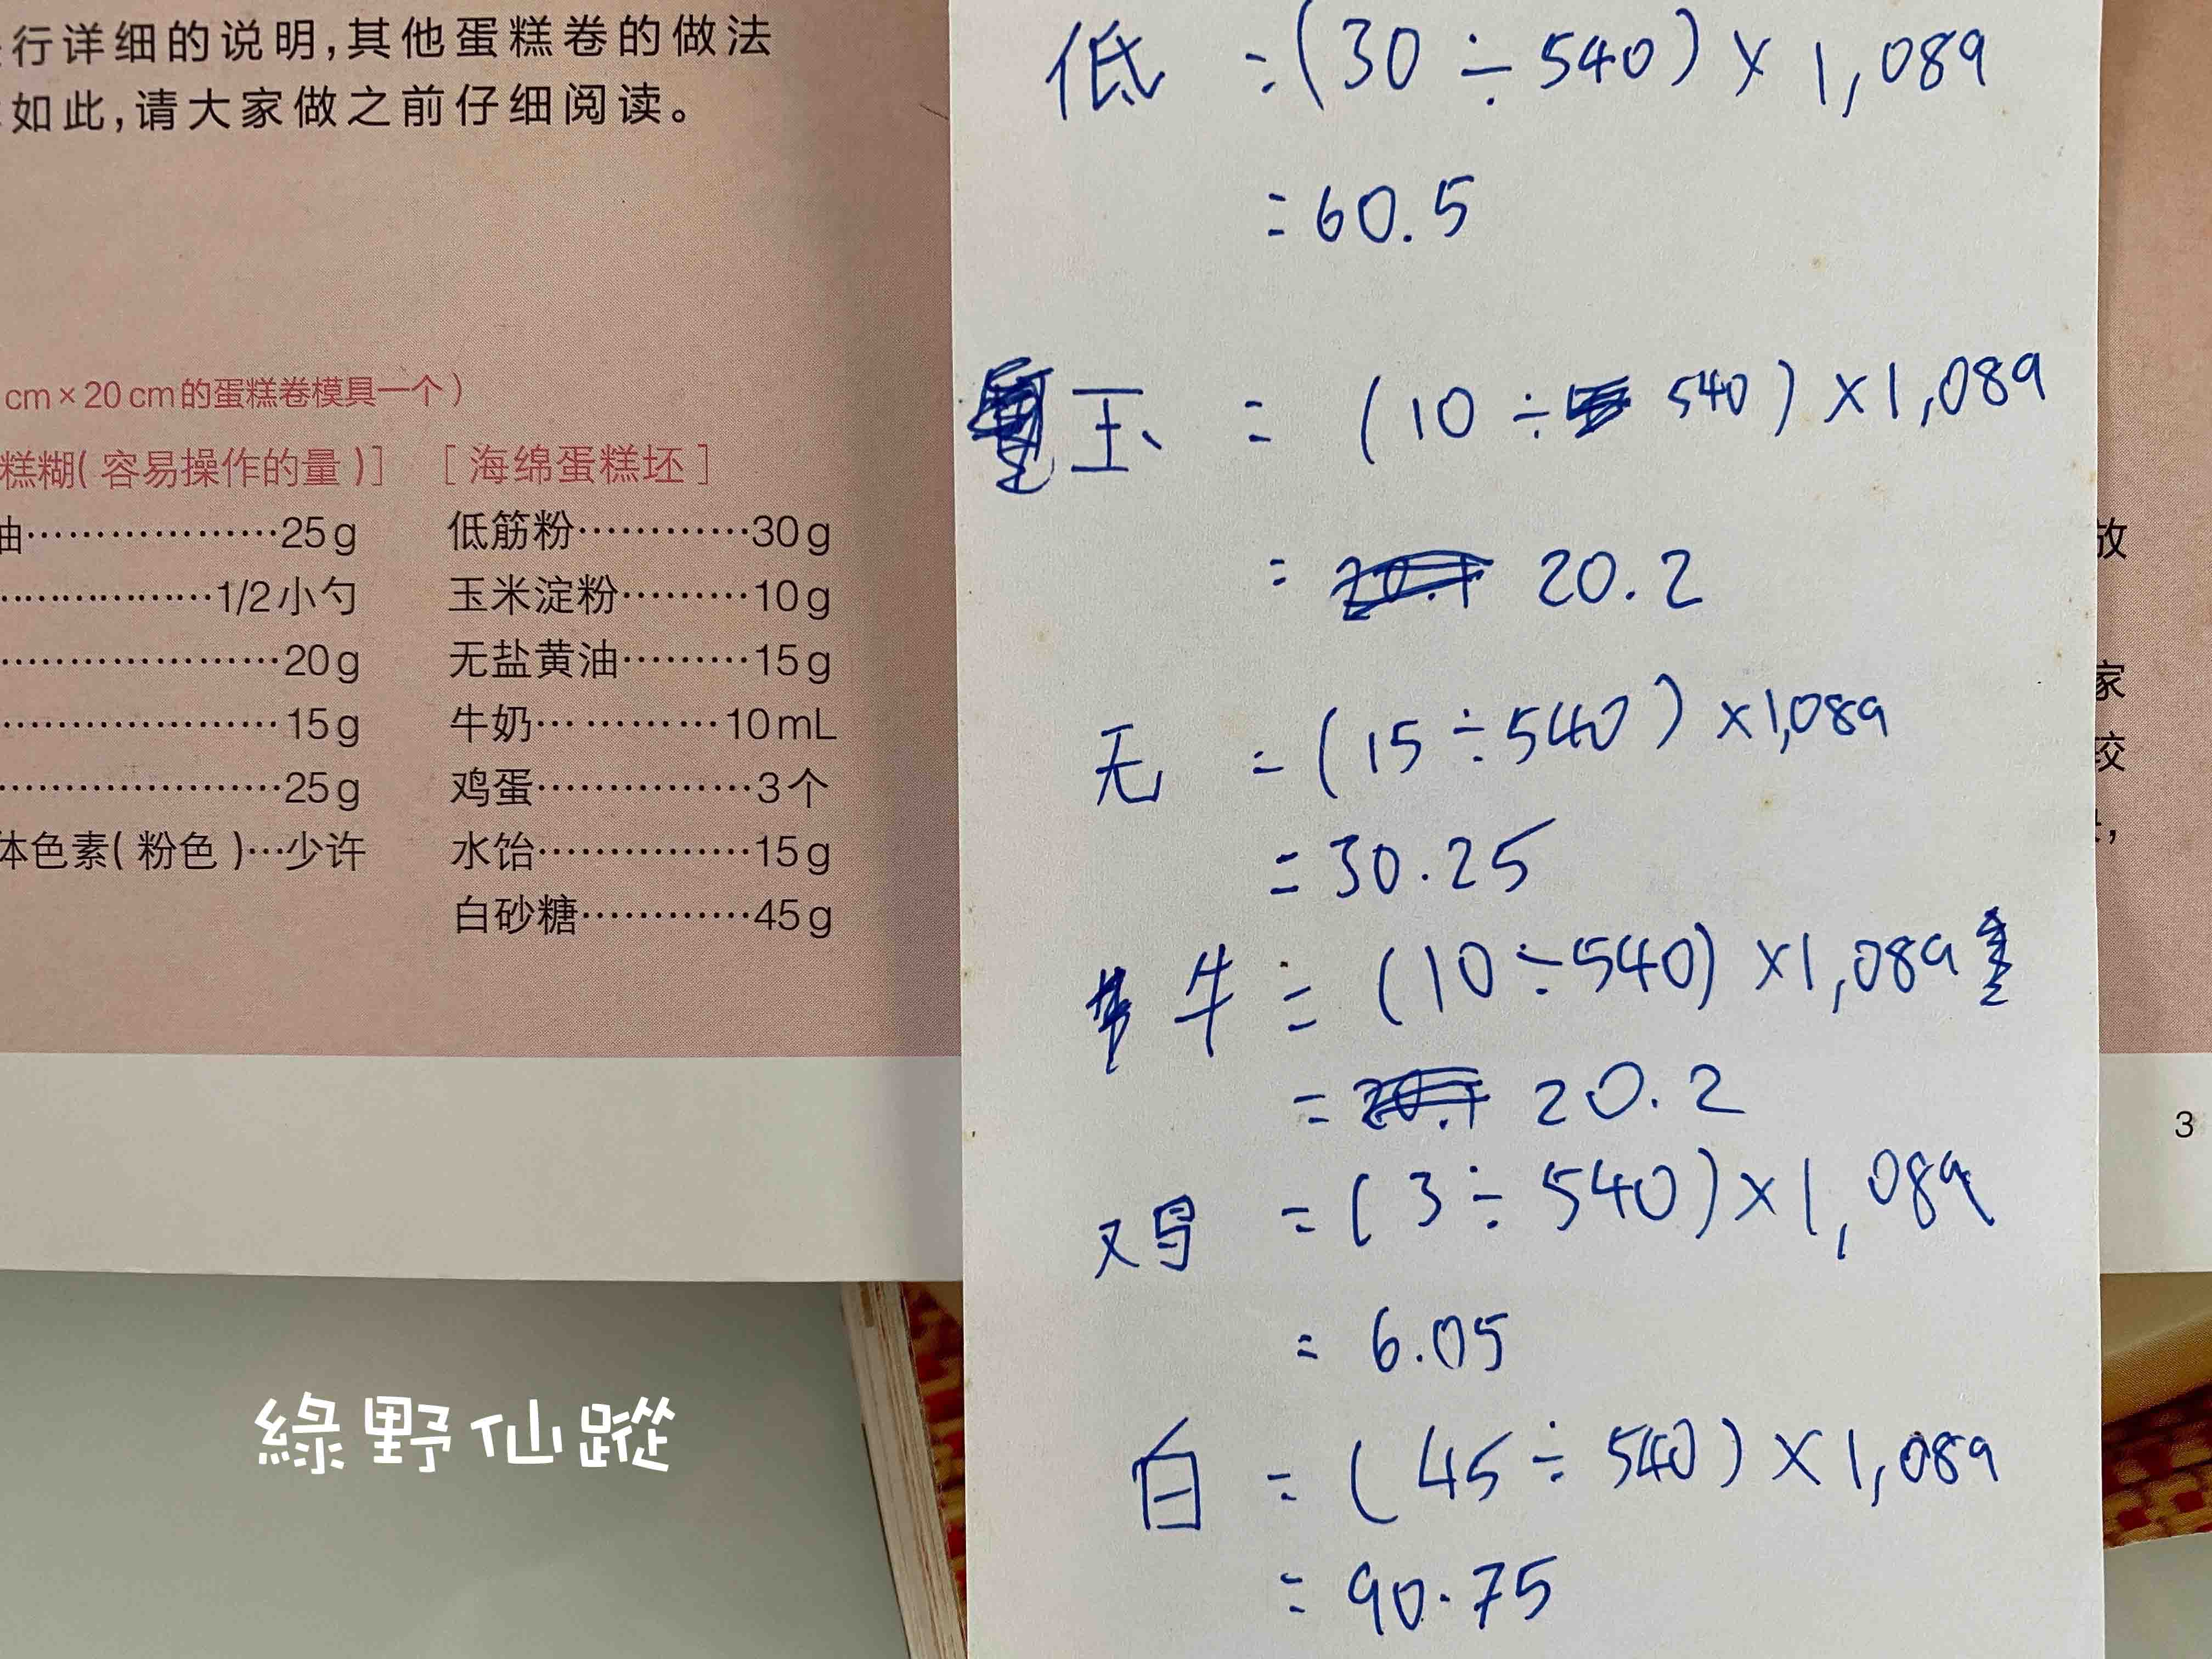 行详细的说明,其他蛋糕卷的做法
如此,请大家做之前仔细阅读。
cm×20cm的蛋糕卷模具一个）
糕糊(容易操作的量)]
油………………25g
………………1/2小勺
………………20g
………………15g
………………25g
体色素(粉色)…少许
[海绵蛋糕坯]
低筋粉…………30g
玉米淀粉………10g
无盐黄油………15g
牛奶…………10mL
鸡蛋……………3个
水饴……………15g
白砂糖…………45g
低 =(30÷540)×1,089
=60.5
玉 = (10÷540)×1,089
= 20.2
无 =(15÷540)×1,089
=30.25
牛 = (10÷540)×1,089
= 20.2
鸡 =(3÷540)×1,089
= 6.05
白 = (45÷540)×1,089
= 90.75
放
家
3
綠野仙蹤